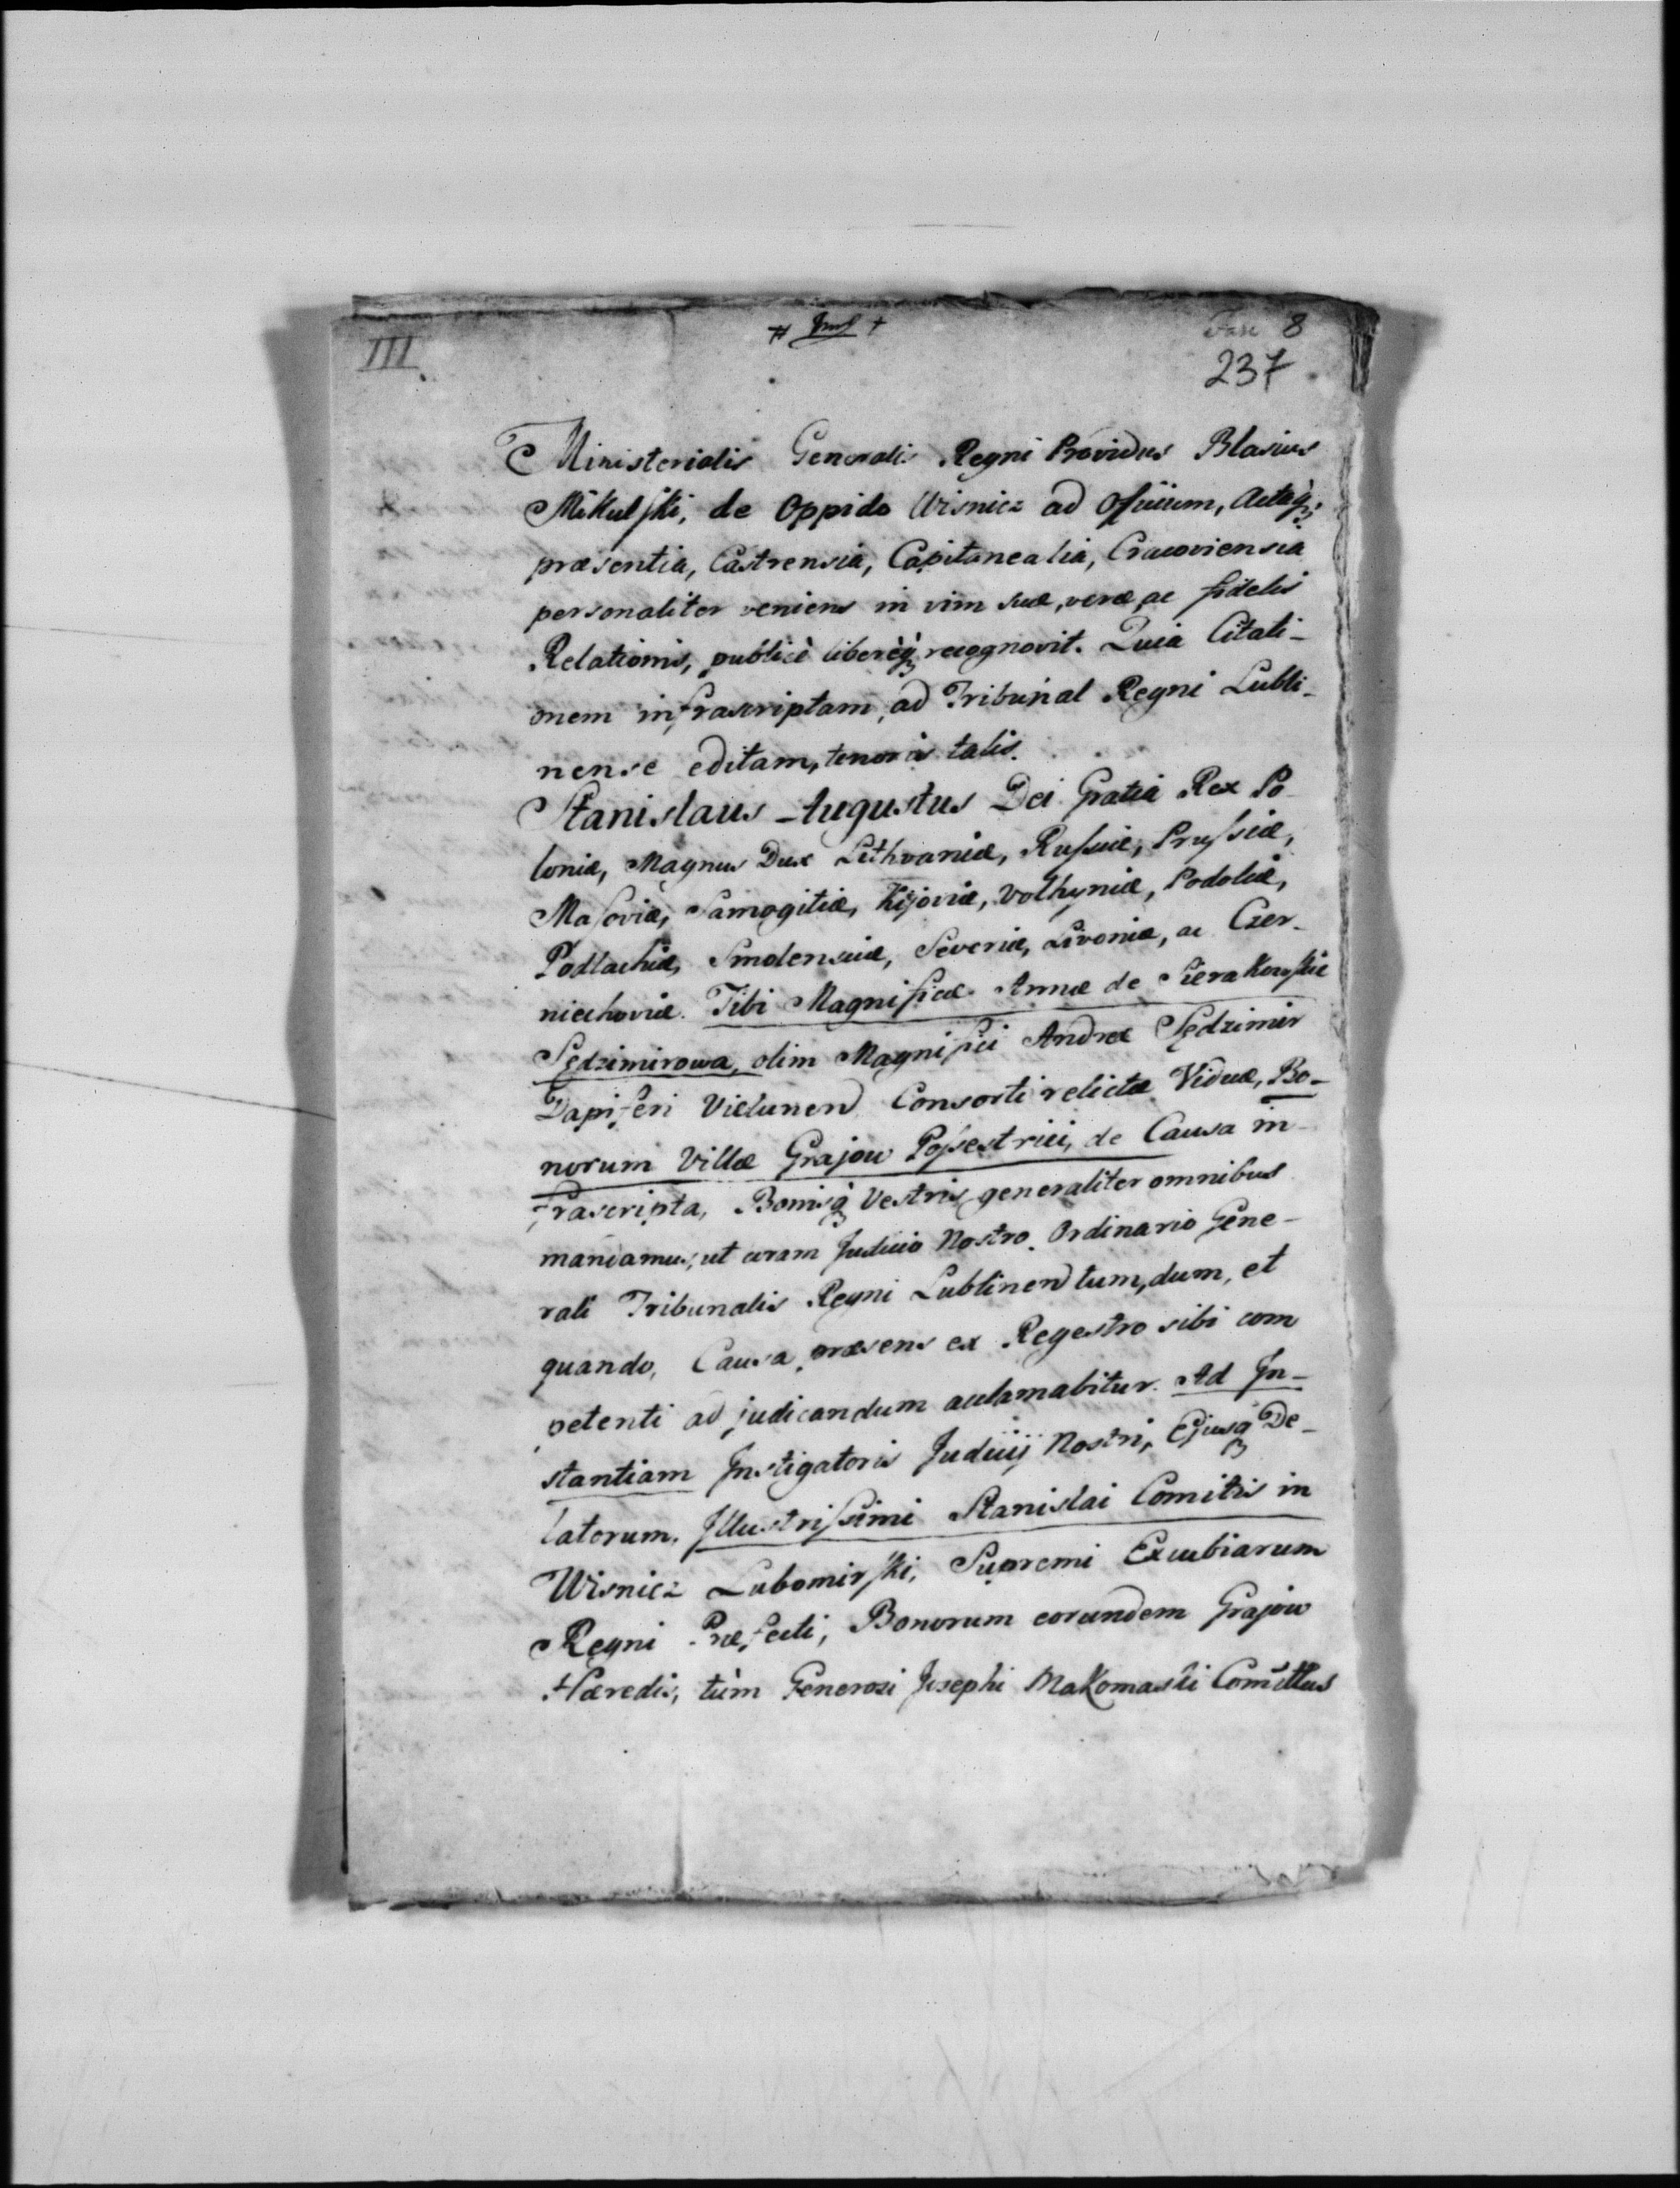 III
Fasc 8
237
Ministerialis Generalis Regni Providus Blasius
Mikulſki, de Oppido Wisnicz ad Offiium, Actaq;
præsentia, Castrensia, Capitanealia, Cracoviensia
personaliter veniens in vim suæ, veræ, ac fidelis
Relationis, publicè liberèq; recognovit. Quia Citati-
onem infrascriptam, ad Tribunal Regni Lubli-
nense editam, tenoris talis.
Stanislaus Augustus Dei Gratia Rex Po-
loniæ, Magnus Dux Lithvaniæ, Ruſsiæ, Pruſsiæ,
Maſoviæ, Samogitiæ, Kijoviæ, Volhyniæ, Podoliæ,
Podlachiæ, Smolensciæ, Severiæ, Livoniæ, ac Czer-
niechoviæ. Tibi Magnificæ Annæ de Sierakowſkie
Sędzimirowa, olim Magnifici Andreæ Sędzimir
Dapiferi Vielunen Consorti relictæ Viduæ, Bo-
norum Villæ Grajow Poſsestrici, de Causa in-
frascripta, Bonisq; Vestris generaliter omnibus
mandamus, ut coram Judicio Nostro Ordinario Gene-
rali Tribunalis Regni Lublinen tum, dum, et
quando, Causa præsens ex Regestro sibi com
petenti ad judicandum acclamabitur. Ad In-
stantiam Instigatoris Judicij Nostri, Ejusq; De-
latorum, Illustriſsimi Stanislai Comitis in
Wisnicz Lubomirſki, Supremi Excubiarum
Regni Præfecti, Bonorum eorundem Grajow
Hæredis, tùm Generosi Josephi Makomaski